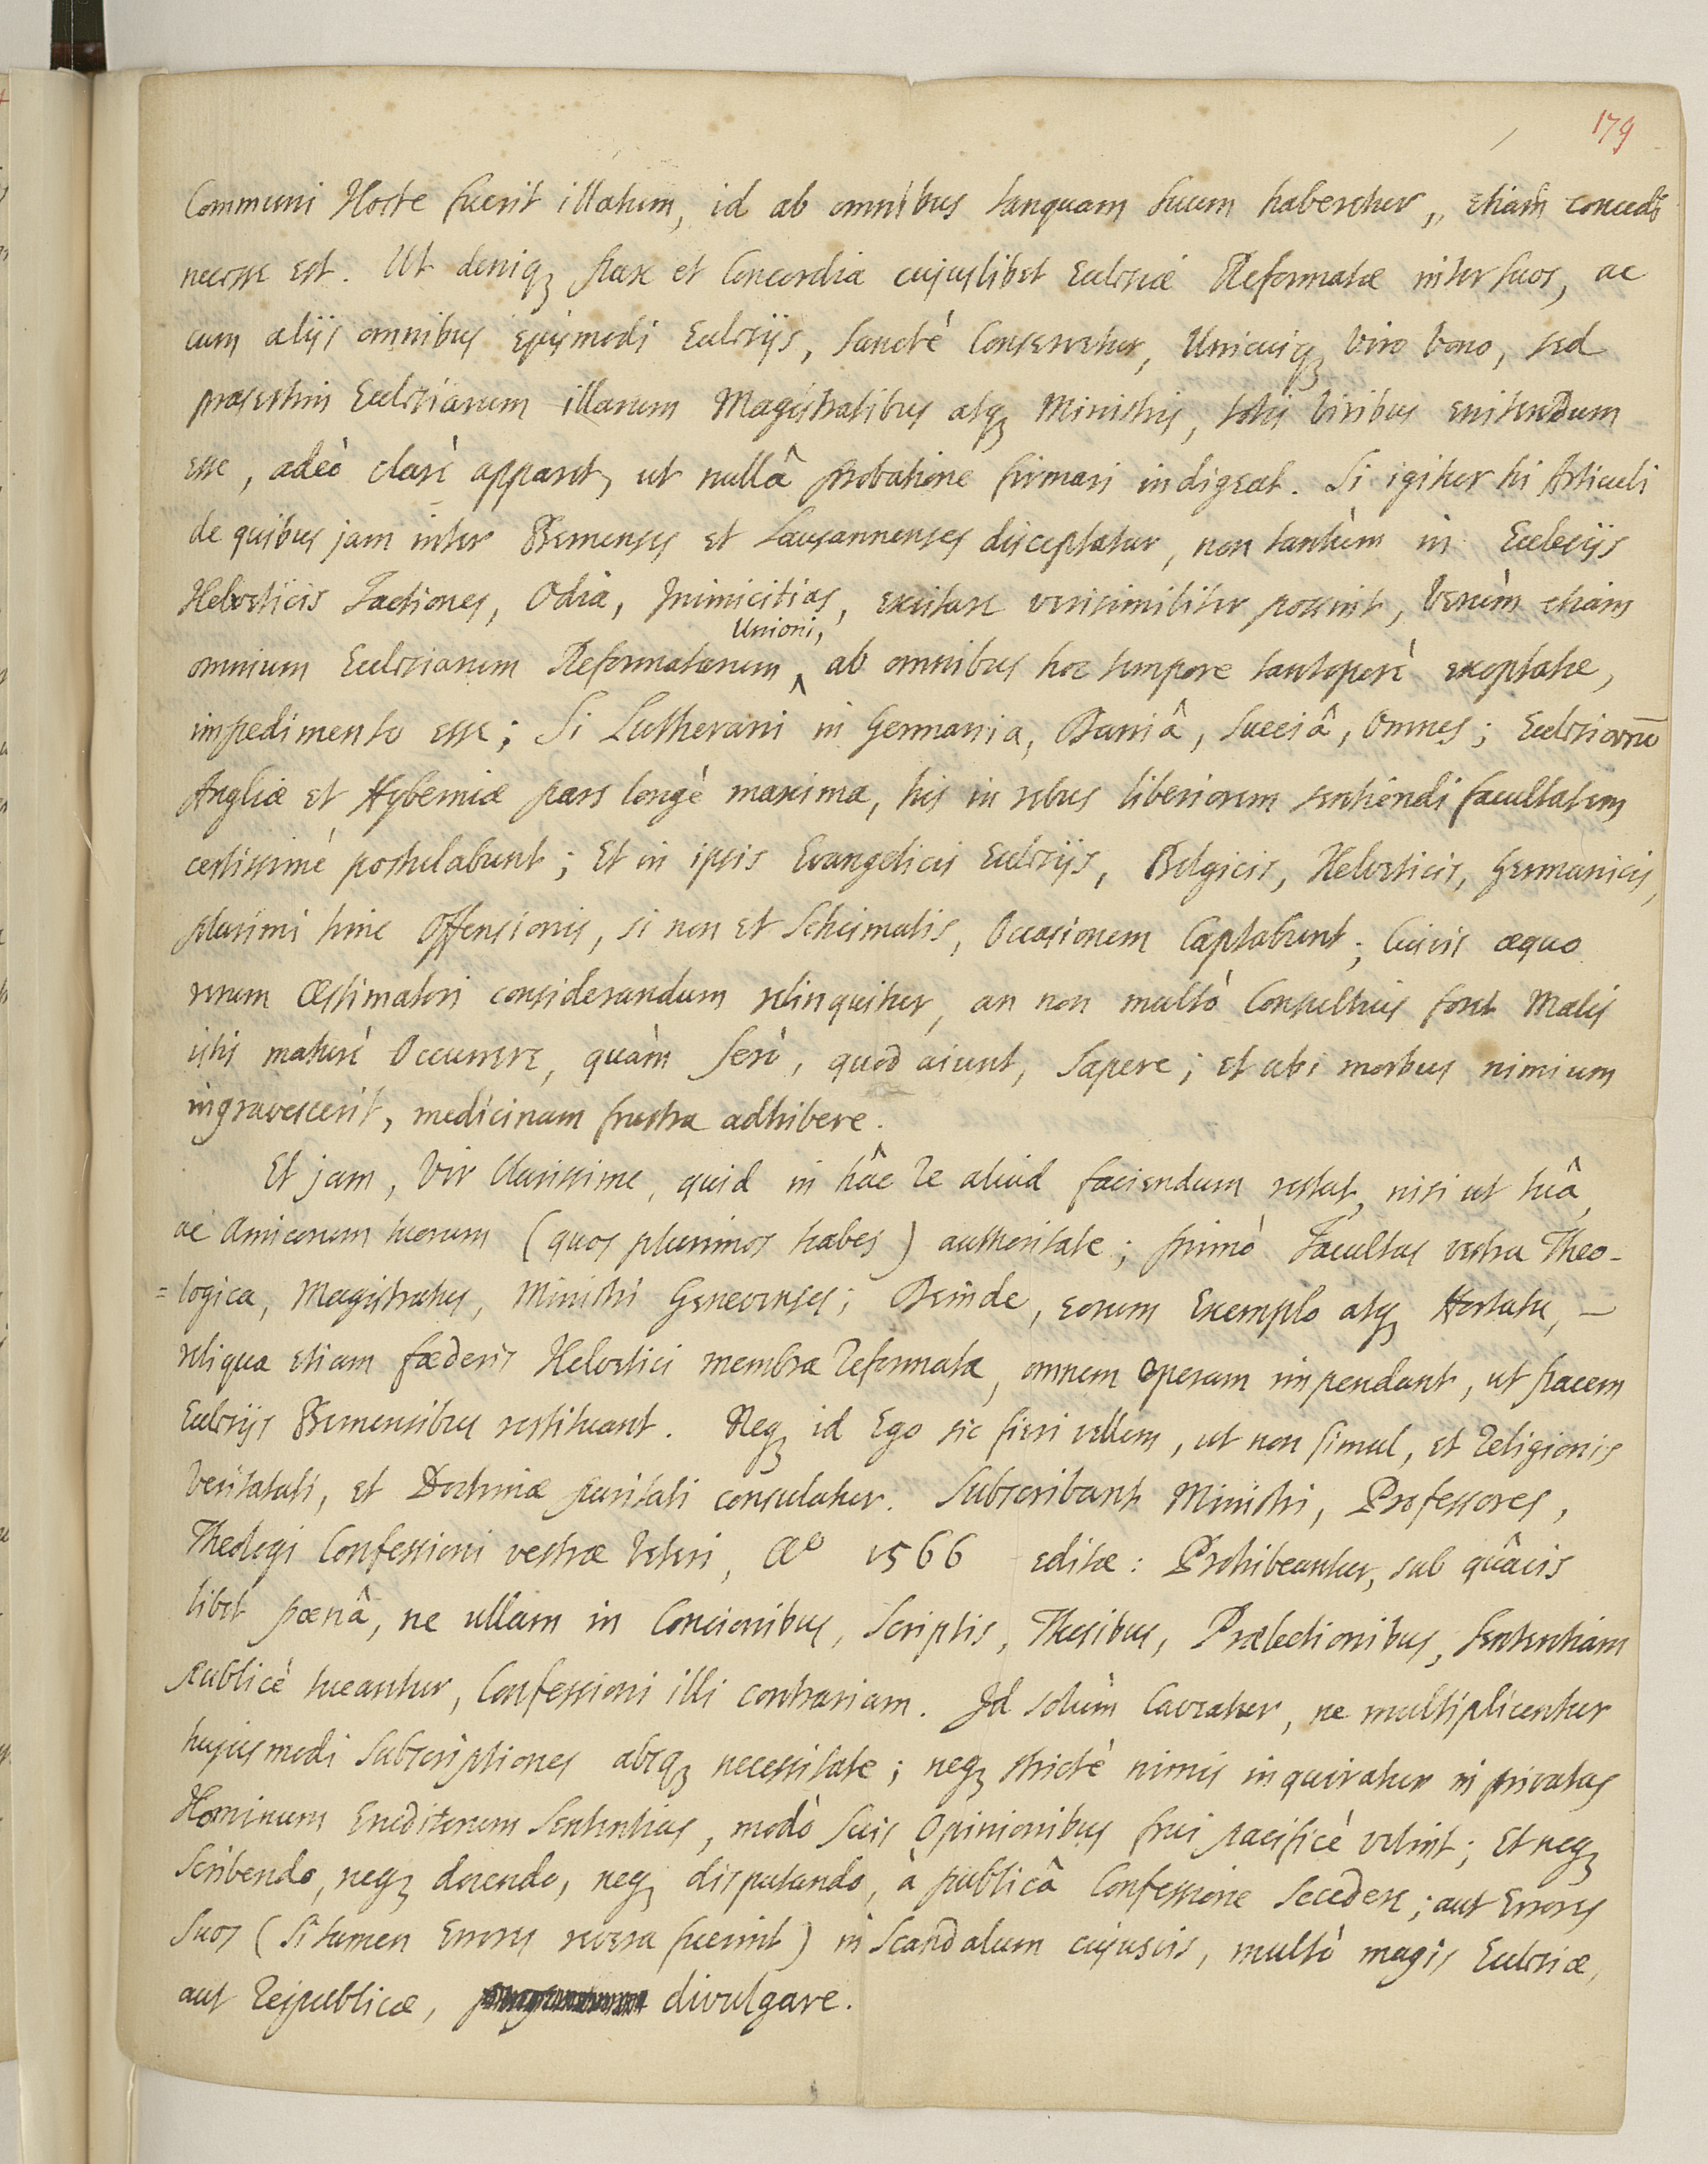 179
Communi Hoste fuerit illatum, id ab omnibus tanquam suum haberetur,, etiam
necesse est. Ut deniqꝫ pax et Concordia cujuslibet Ecclesiæ Reformatæ inter suos, ac
cum aliis omnibus ejusmodi Ecclesijs, sanctè Conservetur, Unicuiqꝫ Viro bono, sed
præsertim Ecclesiarum illarum Magistratibus atqꝫ Ministris, totis Viribus enitendum
esse, adeò clarè apparet, ut nullâ probatione firmari indigeat. Si igitur hi Articuli
de quibus jam inter Bernenses et Lausannenses disceptatur, non tantùm in Ecclesijs
Helveticis Factiones, Odia, Inimicitias, excitare verisimiliter possint, Verùm etiam
omnium Ecclesiarum Reformatarum ‸Unioni, ab omnibus hoc tempore tantoperè exoptatæ,
impedimento esse; Si Lutherani in Germania, Daniâ, Sueciâ, Omnes; Ecclesiarū
Angliæ et Hyberniæ pars longè maxima, his in rebus liberiorem sentiendi facultatem
certissimè postulabunt; Et in ipsis Evangelicis Ecclesijs, Belgicis, Helveticis, Germanicis,
plurimi hinc Offensionis, si non et Schismatis, Occasionem Captabunt; Cuivis æquo
rerum Æstimatori considerandum relinquitur, an non multò Consultius foret Malis
istis maturè Occurrere, quàm Serò, quod aiunt, Sapere; et ubi morbus nimium
ingravescerit, medicinam frustra adhibere.
Et jam, Vir Clarissime, quid in hâc re aliud faciendum restat, nisi ut tuâ,
ac Amicorum tuorum (quos plurimos habes) authoritate; primò Facultas vestra Theo-
=logica, Magistratus, Ministri Genevenses; Deinde, eorum Exemplo atqꝫ Hortatu, -
reliqua etiam fœderis Helvetici membra reformata, omnem operam impendant, ut pacem
Ecclesijs Bernensibus restituant. Neqꝫ id Ego sic fieri vellem, ut non simul, et religionis
Veritati, et Doctrinæ puritati consulatur. Subscribant Ministri, Professores,
Theologi Confessioni vestræ Veteri, Aº 1566 editæ: Prohibeantur, sub quâvis
libet pœnâ, ne ullam in Concionibus, Scriptis, Thesibus, Prælectionibus, sententiam
publicè tueantur, Confessioni illi contrariam. Id solùm Caveatur, ne multiplicentur
hujusmodi Subscriptiones absqꝫ necessitate; neqꝫ strictè nimis inquiratur in privatas
Hominum Eruditorum Sententias, modò Suis Opinionibus frui pacificè velint; Et neqꝫ
Scribendo, neqꝫ docendo, neqꝫ disputando, à publicâ Confessione Secedere; aut Errores
Suos (Si tamen Errores revera fuerint) in Scandalum cujusvis, multò magis Ecclesiæ,
aut Reipublicæ, divulgare.